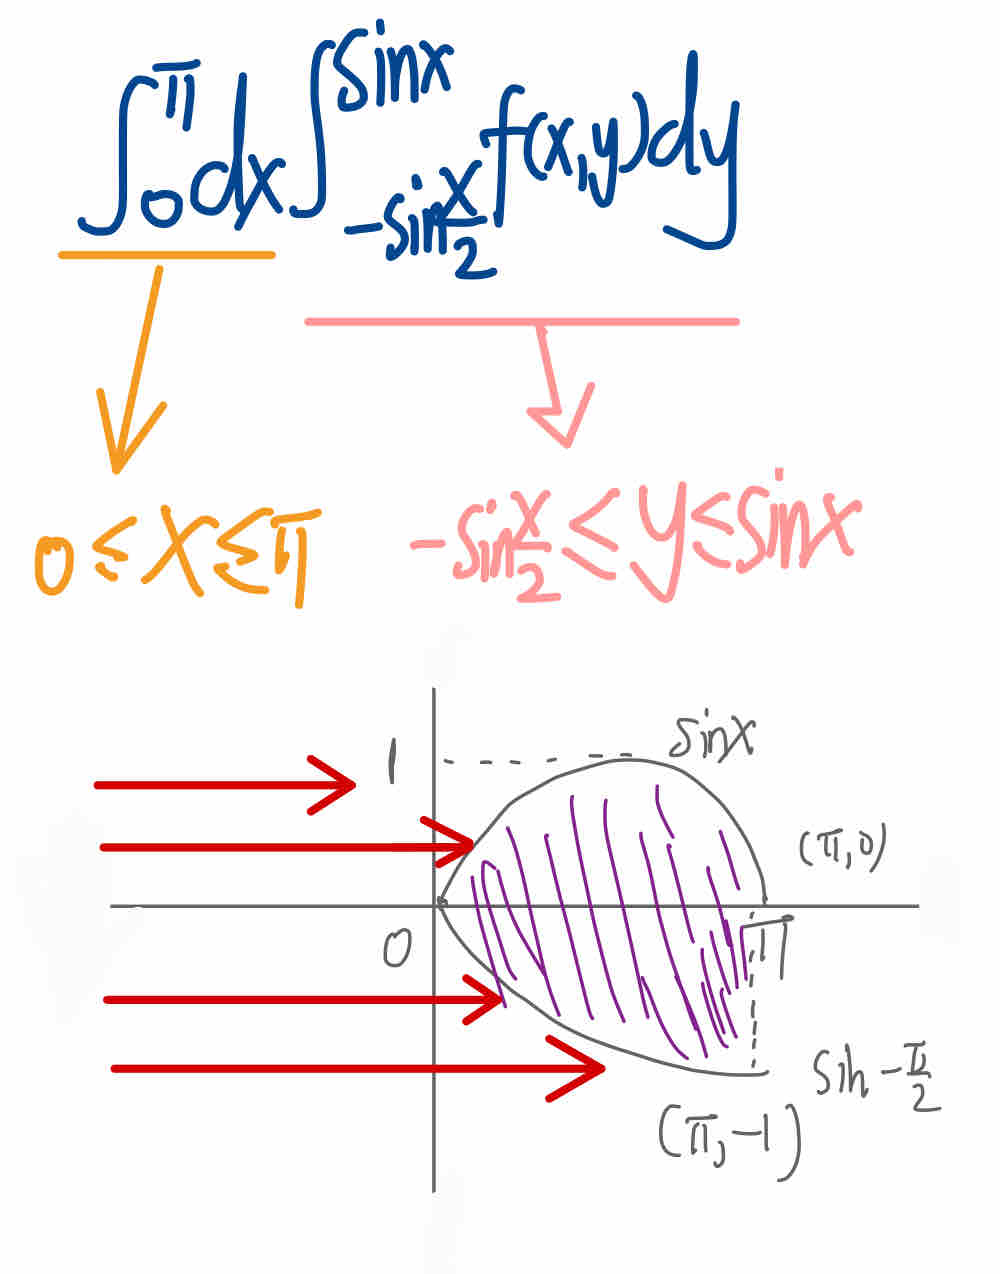 ∫₀^π dx ∫_{-sin x/2}^{sinx} f(x,y)dy
0 ≤ x ≤ π
-sin x/2 ≤ y ≤ sinx
sinx
1
(π,0)
0
π
sin -π/2
(π,-1)